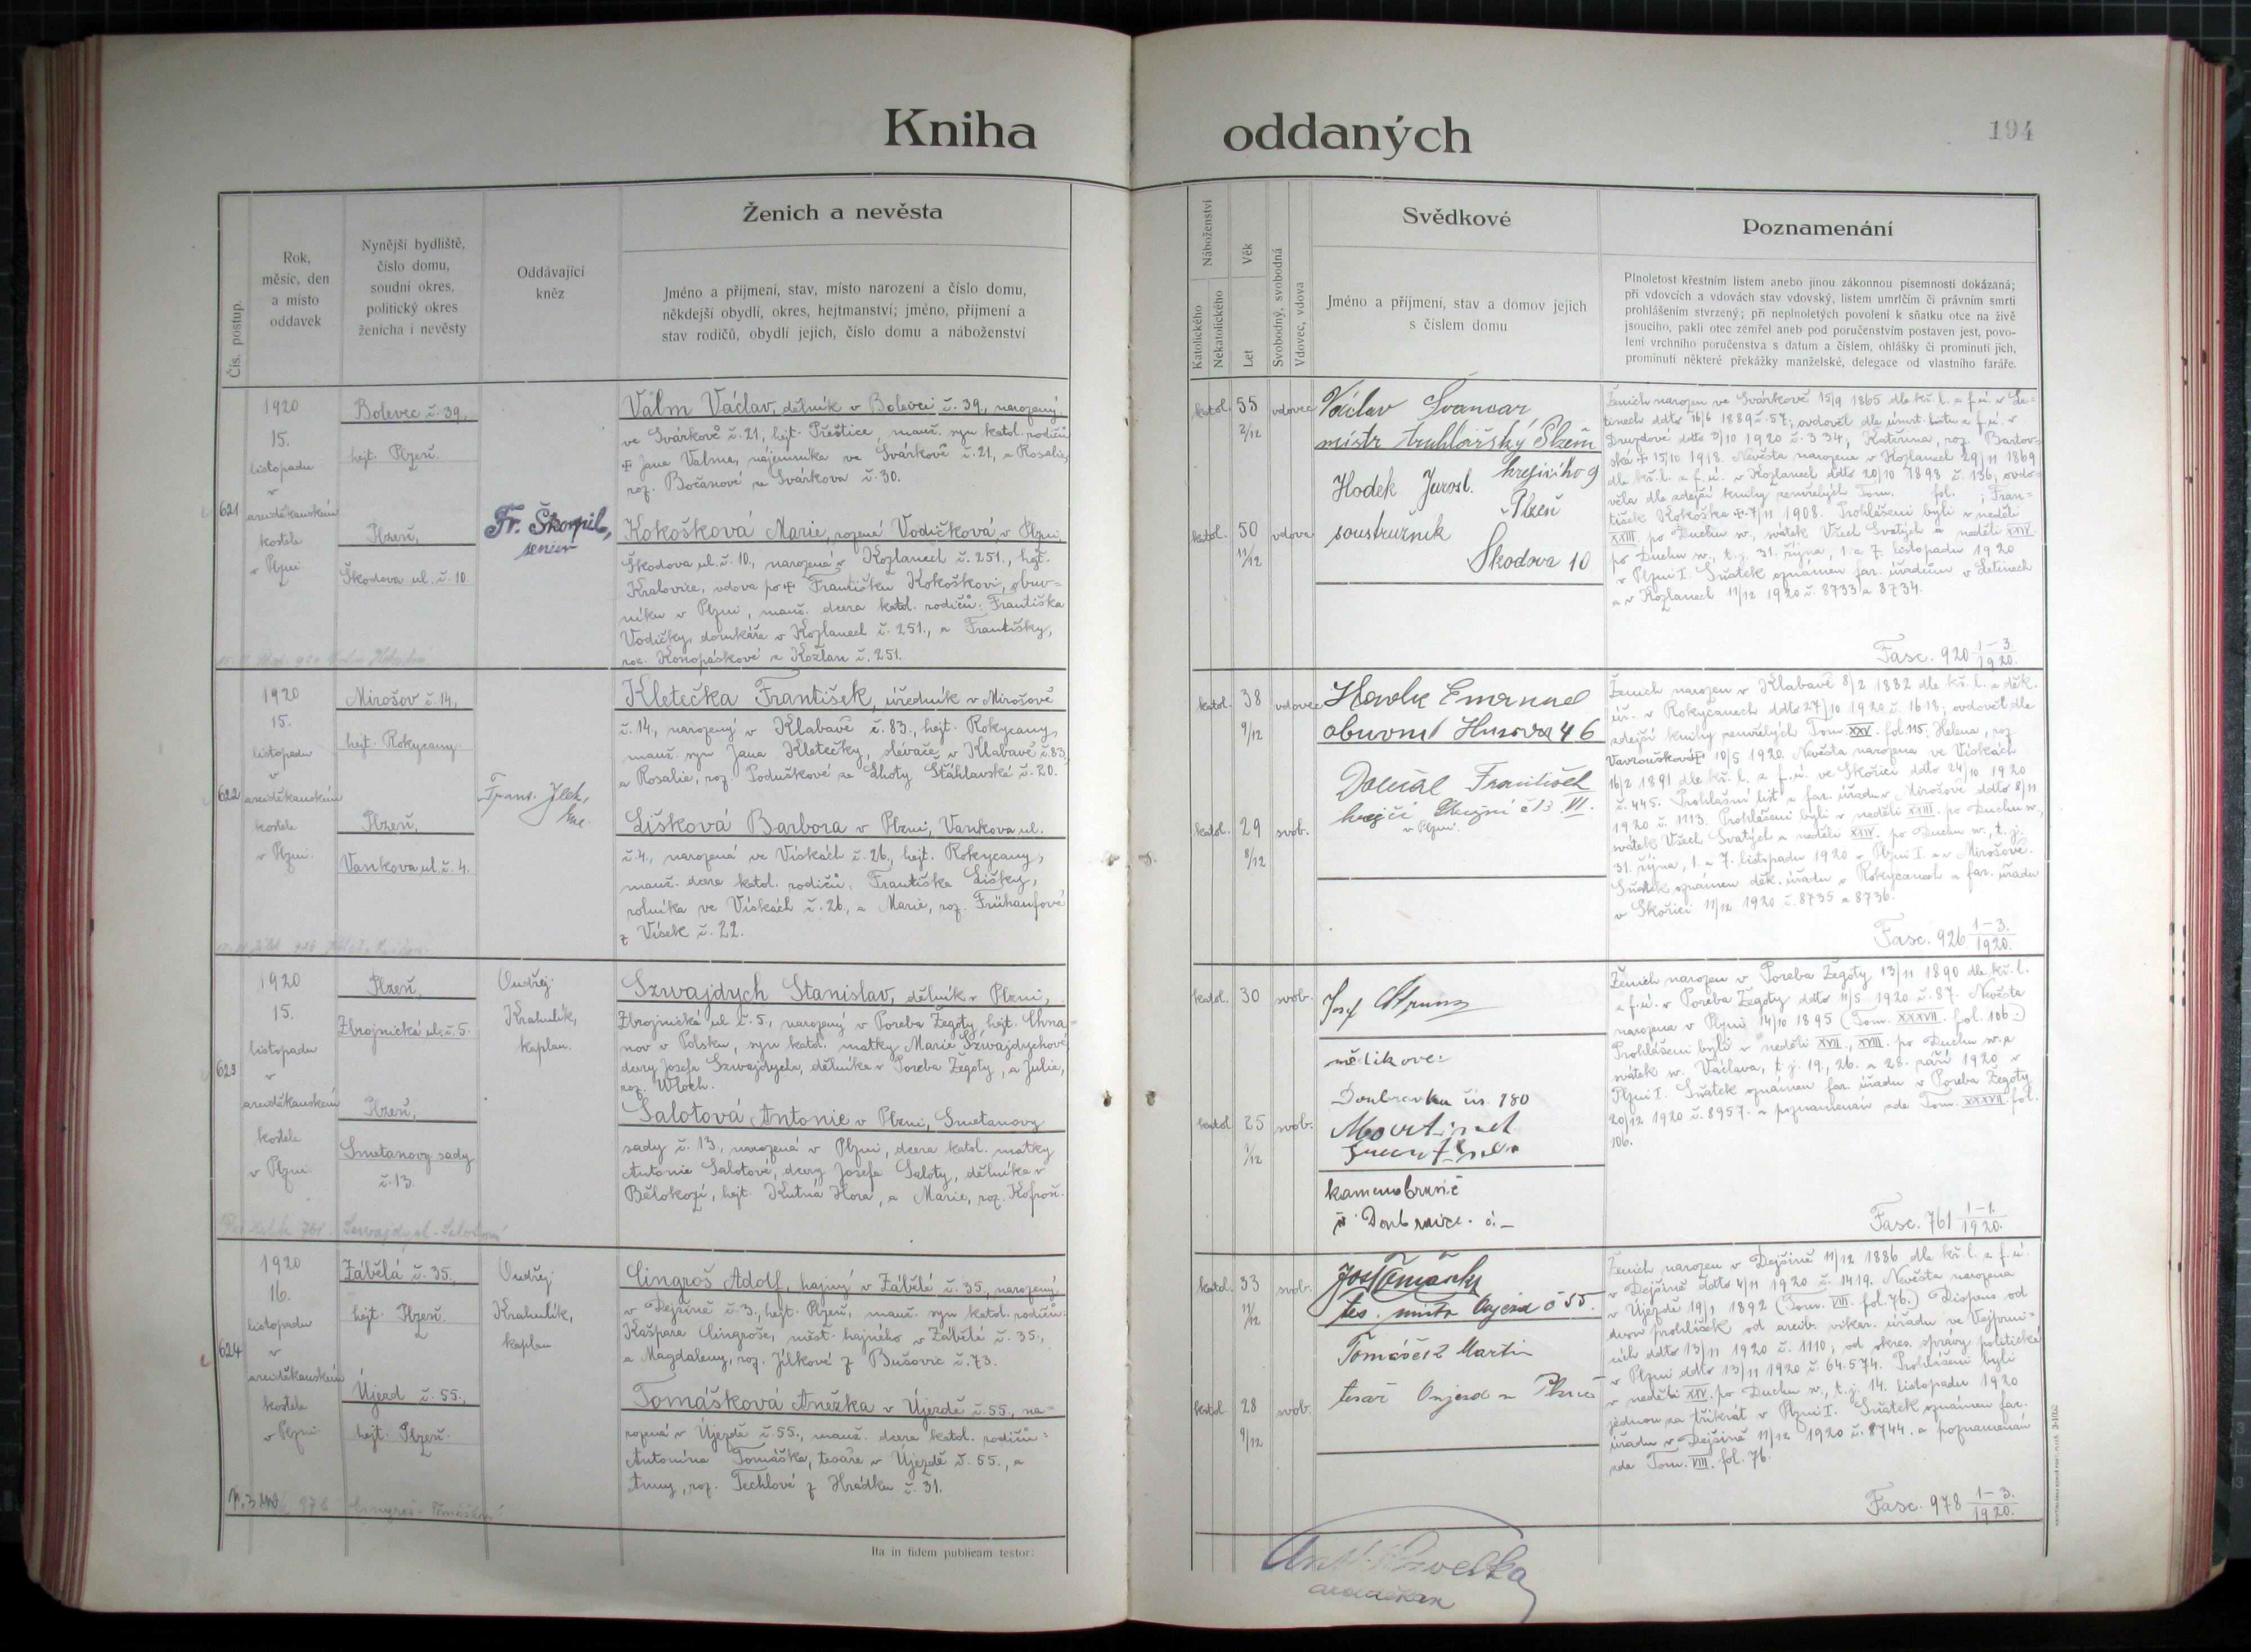 Kniha oddaných
194
Čís. postup.
Rok,
měsíc, den
a místo
oddavek
Nynější bydliště,
číslo domu,
soudní okres,
politický okres
ženicha i nevěsty
Oddávající
kněz
Ženich a nevěsta
Jméno a příjmení, stav, místo narození a číslo domu,
někdejší obydlí, okres, hejtmanství; jméno, příjmení a
stav rodičů, obydlí jejich, číslo domu a náboženství
Náboženství
Katolického
Nekatolického
Věk
Let
Svobodný, svobodná
Vdovec, vdova
Svědkové
Jméno a příjmení, stav a domov jejich
s číslem domu
Poznamenání
Plnoletost křestním listem anebo jinou zákonnou písemností dokázaná;
při vdovcích a vdovách stav vdovský, listem úmrlčím či právním smrti
prohlášením stvrzený; při neplnoletých povolení k sňatku otce na živě
jsoucího, pakli otec zemřel aneb pod poručenstvím postaven jest, povo-
lení vrchního poručenstva s datum a číslem, ohlášky či prominutí jich,
prominutí některé překážky manželské, delegace od vlastního faráře.
621
1920
15.
listopadu
v
arciděkanském
kostele
v Plzni
Bolevec č. 39.,
hejt. Plzeň.
Plzeň,
Škodova ul. č. 10.
Fr. Škorpil,
senior
Valm Václav, dělník v Bolevci č. 39., narozený
ve Svárkově č. 21, hejt. Přeštice, manž. syn katol. rodičů
☩ Jana Valma, nájemníka ve Svárkově č. 21, a Rosalie,
roz. Bočanové ze Svárkova č. 30.
Kokošková Marie, rozená Vodičková v Plzni,
Škodova ul. č. 10., narozená v Kozlanech č. 251., hejt.
Kralovice, vdova po ☩ Františku Kokoškovi, obuv-
níku v Plzni, manž. dcera katol. rodičů: Františka
Vodičky, domkáře v Kozlanech č. 251., a Františky,
roz. Konopáskové z Kožlan č. 251.
katol. 55 2/12 vdovec
katol. 50 11/12 vdova
Václav Švancar
mistr truhlářský Plzeň
9
Hodek Jarosl.
Plzeň
soustružník
Škodova 10
Ženich narozen ve Svárkově 15/9 1865 dle kř. l. z f. ú. v Le-
tinech ddto 16/6 1889 č. 57; ovdověl dle úmrt. listu z f. ú. v
Druzdové ddto 3/10 1920 č. 334, Kateřina, roz. Bartov-
ská ☩ 15/10 1918. Nevěsta narozena v Kozlanech 29/11 1869
dle kř. l. z f. ú. v Kozlanech ddto 20/10 1898 č. 136, ovdo-
věla dle zdejší knihy zemřelých Tom. fol. ; Fran-
tišek Kokoška ☩ 7/11 1908. Prohlášeni byli v neděli
XXIII. po Duchu sv., svátek Všech Svatých a neděli XXIV.
po Duchu sv., t. j. 31. října, 1. a 7. listopadu 1920
v Plzni I. Sňatek oznámen far. úřadům v Letinech
a v Kozlanech 11/12 1920 č. 8733 a 8734.
Fasc. 920 1-3./1920.
622
1920
15.
listopadu
v
arciděkanském
kostele
v Plzni.
Mirošov č. 14,
hejt. Rokycany.
Plzeň,
Vankova ul. č. 4.
Kletečka František, úředník v Mirošově
č. 14, narozený v Klabavě č. 83., hejt. Rokycany,
manž. syn Jana Kletečky, slévače v Klabavě č. 83,
a Rosalie, roz. Poduškové ze Lhoty Šťáhlavské č. 20.
Lišková Barbora v Plzni, Vankova ul.
č. 4., narozená ve Vískách č. 26., hejt. Rokycany,
manž. dcera katol. rodičů: Františka Lišky,
rolníka ve Vískách č. 26., a Marie, roz. Frühaufové
z Vísek č. 22.
katol. 38 9/12 vdovec
katol. 29 8/12 svob.
Emanuel
obuvník Husova 46
Doležal František
krejčí č 13 VI.
v Plzni.
Ženich narozen v Klabavě 8/2 1882 dle kř. l. z děk.
úř. v Rokycanech ddto 27/10 1920 č. 1618; ovdověl dle
zdejší knihy zemřelých Tom. XXV. fol. 115; Helena, roz.
Vavroušková ☩ 10/5 1920. Nevěsta narozena ve Vískách
16/2 1891 dle kř. l. z f. ú. ve Skořici ddto 24/10 1920
č. 445. Prohlašní list z far. úřadu v Mirošově ddto 8/11
1920 č. 1113. Prohlášeni byli v neděli XXIII. po Duchu sv.,
svátek Všech Svatých a neděli XXIV. po Duchu sv., t. j.
31. října, 1. a 7. listopadu 1920 v Plzni I. a v Mirošově.
Sňatek oznámen děk. úřadu v Rokycanech a far. úřadu
v Skořici 11/12 1920 č. 8735 a 8736.
Fasc. 926 1-3./1920.
623
1920
15.
listopadu
v
arciděkanském
kostele
v Plzni.
Plzeň,
Zbrojnická ul. č. 5.
Plzeň,
Smetanovy sady
č. 13.
Ondřej
Krahulík,
kaplan.
Szwajdych Stanislav, dělník v Plzni,
Zbrojnická ul. č. 5., narozený v Poreba Žegoty, hejt. Chrza-
nov v Polsku, syn katol. matky Marie Szwajdychové,
dcery Josefa Szwajdycha, dělníka v Poreba Žegoty, a Julie,
roz. Wloch.
Salotová Antonie v Plzni, Smetanovy
sady č. 13., narozená v Plzni, dcera katol. matky
Antonie Salotové, dcery Josefa Saloty, dělníka v
Bělokozí, hejt. Kutná Hora, a Marie, roz. Kofroň.
katol. 30 svob.
katol. 25 1/12 svob.
Josef
Doubravka čís. 180
kamenobrusič
Ženich narozen v Poreba Žegoty 13/11 1890 dle kř. l.
z f. ú. v Poreba Žegoty ddto 11/5 1920 č. 87. Nevěsta
narozena v Plzni 14/10 1895 (Tom. XXXVII. fol. 106.)
Prohlášeni byli v neděli XVII., XVIII. po Duchu sv. a
svátek sv. Václava, t. j. 19., 26. a 28. září 1920 v
Plzni I. Sňatek oznámen far. úřadu v Poreba Žegoty
20/12 1920 č. 8957. a poznamenán zde Tom. XXXVII. fol.
106.
Fasc. 761 1-1./1920.
624
1920
16.
listopadu
v
arciděkanském
kostele
v Plzni
Zábělá č. 35.,
hejt. Plzeň.
Újezd č. 55.,
hejt. Plzeň.
Ondřej
Krahulík,
kaplan
Cingroš Adolf, hajný v Zábělé č. 35., narozený
v Dejšině č. 3., hejt. Plzeň, manž. syn katol. rodičů:
Kašpara Cingroše, měst. hajného v Zábělé č. 35.,
a Magdaleny, roz. Jílkové z Bušovic č. 73.
Tomášková Anežka v Újezdě č. 55., na-
rozená v Újezdě č. 55., manž. dcera katol. rodičů:
Antonína Tomáška, tesaře v Újezdě č. 55., a
Anny, roz. Techlové z Hrádku č. 31.
katol. 33 11/12 svob.
katol. 28 9/12 svob.
Jos. Tomášek
tes. mistr Oujezd č 55.
Tomášek Martin
tesař Oujezd u Plzně
Ženich narozen v Dejšině 11/12 1886 dle kř. l. z f. ú.
v Dejšině ddto 4/11 1920 č. 1419. Nevěsta narozena
v Újezdě 19/1 1892 (Tom. VIII. fol. 76.) Dispens od
dvou prohlášek od arcib. vikar. úřadu ve Vejprni-
cích ddto 13/11 1920 č. 1110; od okres. správy politické
v Plzni ddto 13/11 1920 č. 64.574. Prohlášeni byli
v neděli XXV. po Duchu sv., t. j. 14. listopadu 1920
jednou za třikrát v Plzni I. Sňatek oznámen far.
úřadu v Dejšině 11/12 1920 č. 8744. a poznamenán
zde Tom. VIII. fol. 76.
Fasc. 978 1-3./1920.
Ita in fidem publicam testor:
arciděkan